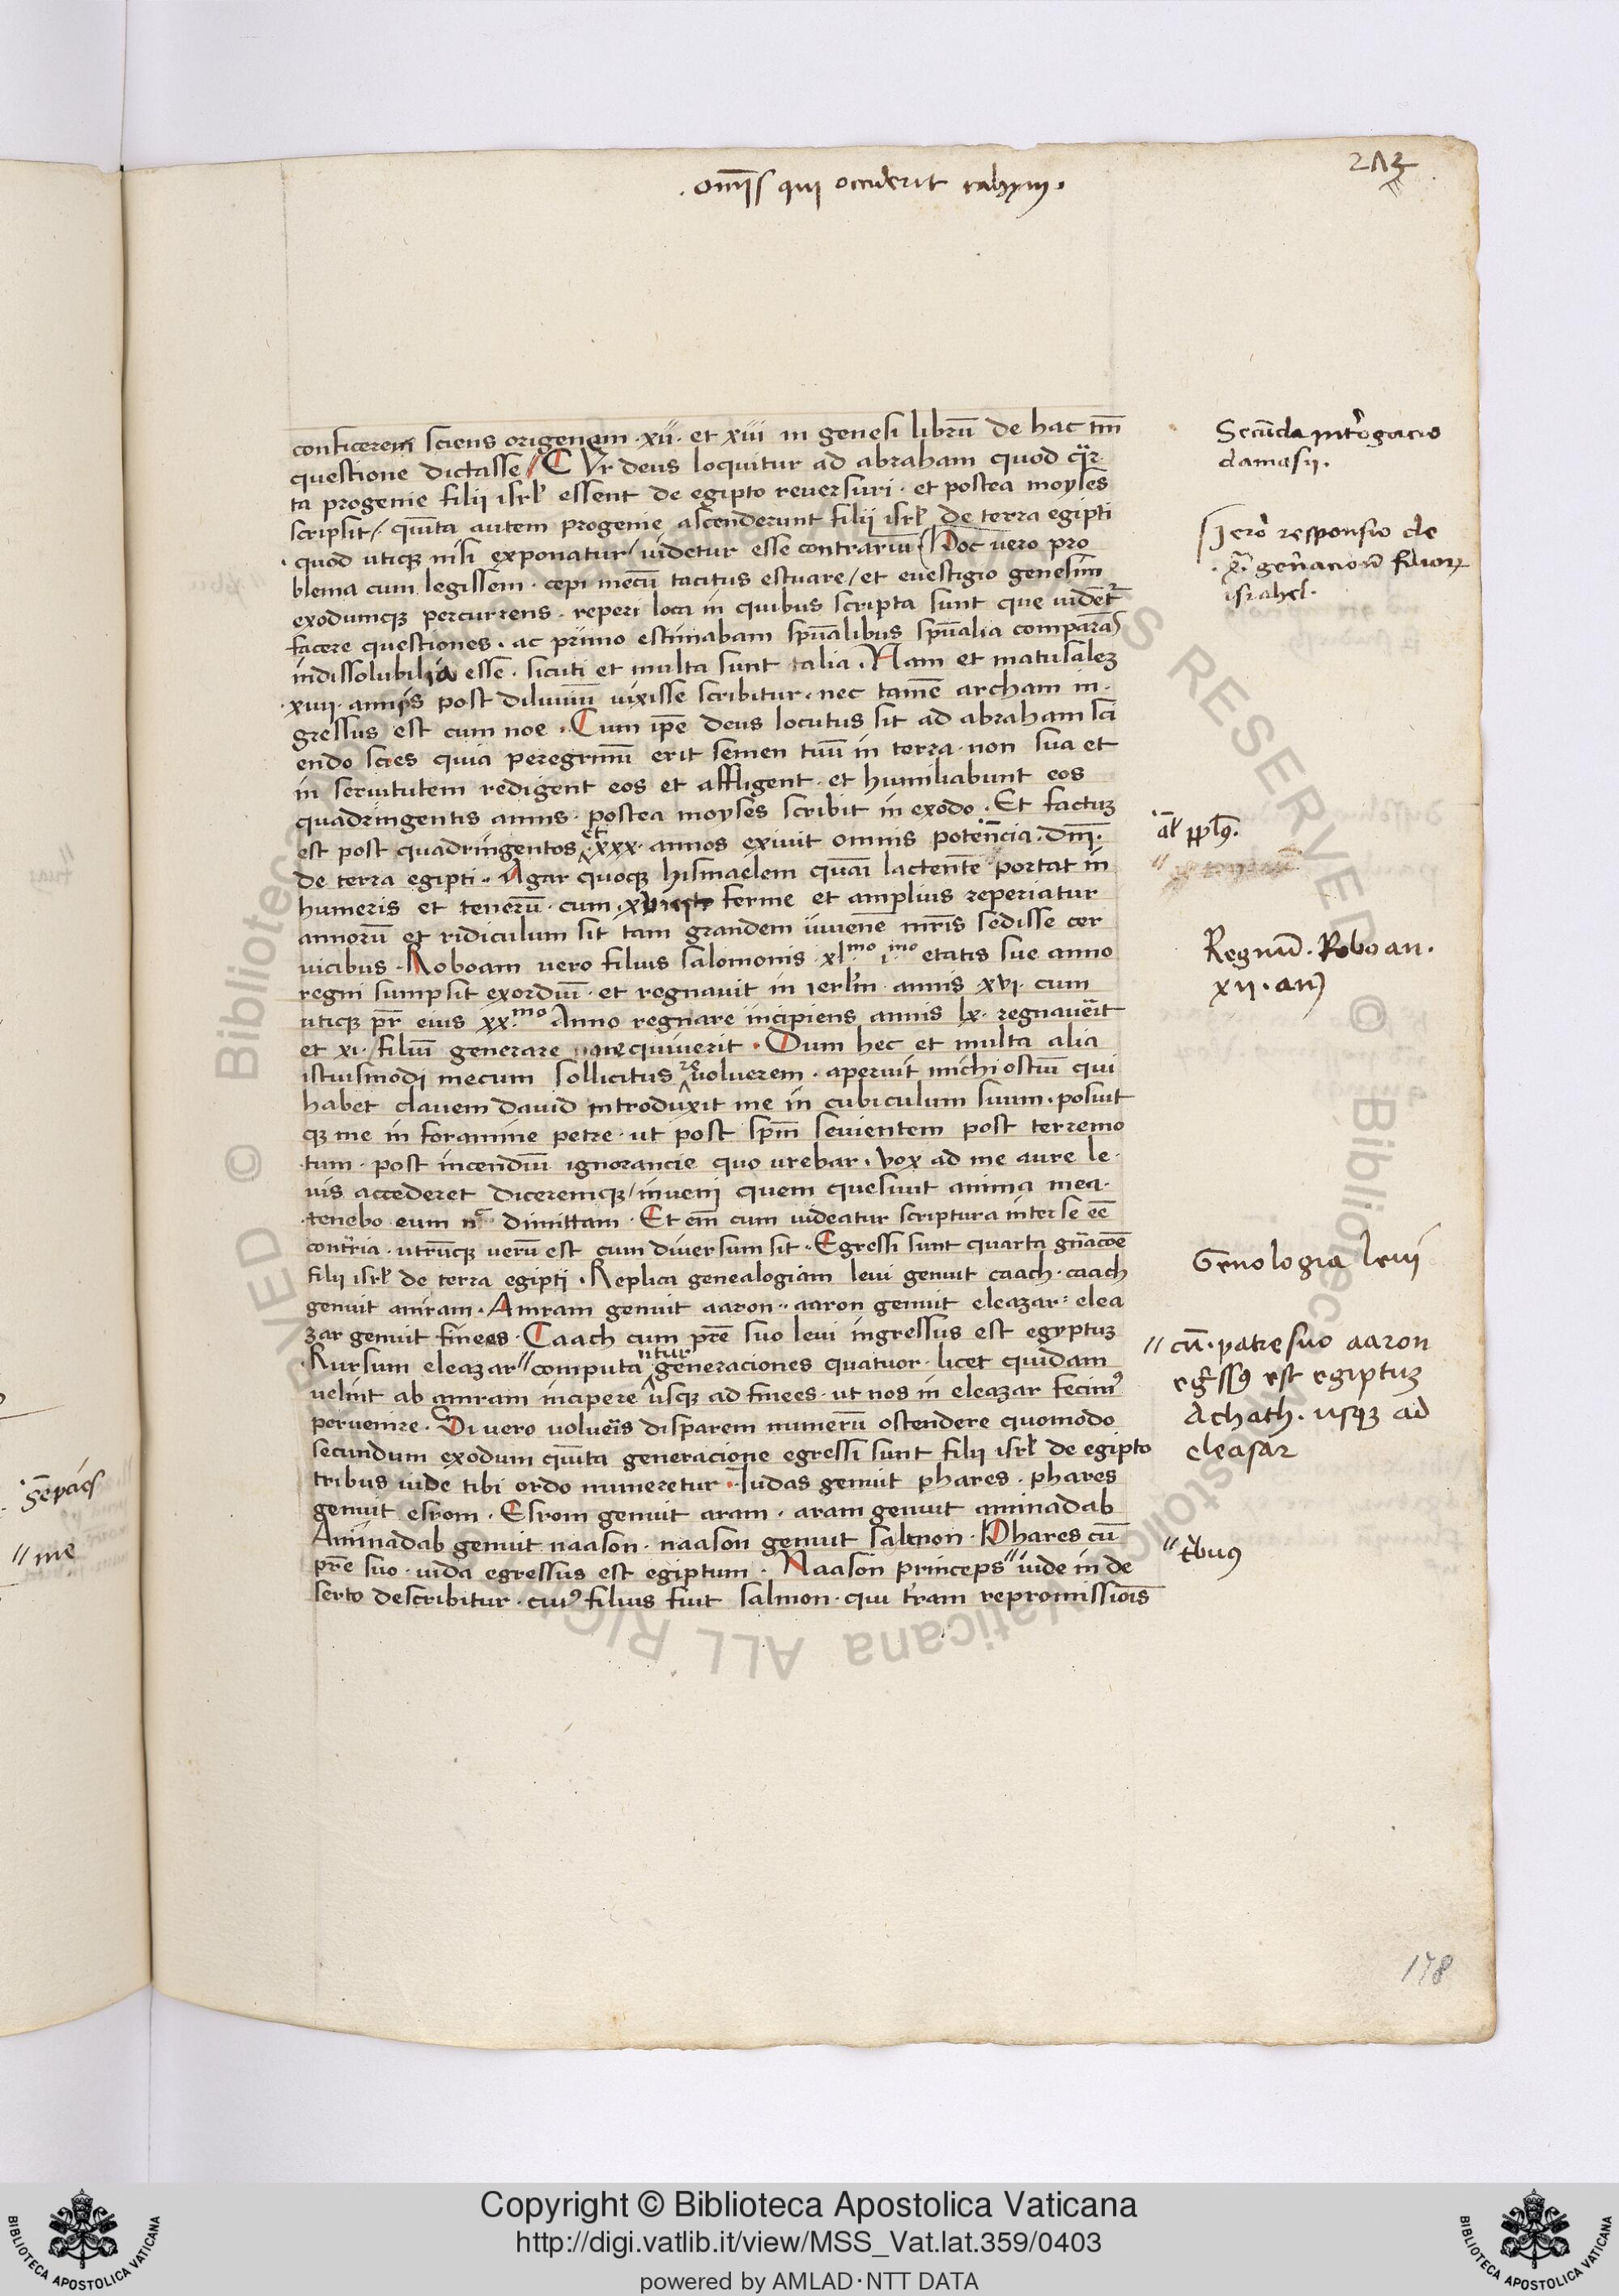 213
. om̄is qui occiderit cahym .
conficerem sciens origenem · xii · et xiii in genesi librū de hac tm̄
questione dictasse // CVr deus loquitur ad abraham quod q̈r-
ta progenie filii isrl̕ essent de egipto reuersuri · et postea moyses
scripsit / · quīta autem progenie ascenderunt filii isrl̕ de terra egipti
· quod utiqꝫ nisi exponatur / uidetur esse contrariū Hoc vero pro
blema cum legissem · cepi mecū tacitus estuare / et euestigio genesim
exodumqꝫ percurrens · reperi loca in quibus scripta sunt que uident᷑
facere questiones · ac primo estimabam spūalibus spūalia comparās
indissolubilia esse · sicuti et multa sunt talia · Nam et matusaleꝫ
· xiiii · annis post diluuiū uixisse scribitur · nec tamē archam in-
gressus est cum noe · Cum ip̄e deus locutus sit ad abraham sci
endo scies quia peregrinū erit semen tuū in terra · non sua et
in seruitutem redigent eos et affligent · et humiliabunt eos
quadringentis annis · postea moyses scribit in exodo · Et factuꝫ
est post quadringentos et · xxx · annos exiuit omnis potencia · dm̄ ·
de terra egipti · Agar quoqꝫ hismaelem quasi lactentē portat in
humeris et tenerū · cum ferme et amplius reperiatur
annorū et ridiculum sit tam grandem iuuenē mr̄is sedisse cer
uicibus · Roboam vero filius salomonis · xl mo i mo etatis sue anno
regni sumpsit exordiū · et regnauit in ierl̕m · annis · xvi · cum
utiqꝫ pr̄ eius xx mo Anno regnare incipiens annis lx · regnaueit
et xi · filiū generare quiuerit · Dum hec et multa alia
istiusmodi mecum sollicitus re uoluerem · aperuit michi ostiū qui
habet clauem dauid introduxit me in cubiculum suum · posuit
qꝫ me in foramine petre · ut post spm̄ seuientem post terremo
tum · post incendiū ignorancie quo urebar · vox ad me aure le-
uis accederet diceremqꝫ / inueni quem quesiuit anima mea ·
tenebo eum nc̄ dimittam · Et em̄ cum uideatur scriptura inter se eē
contr̄ria · utrūqꝫ verū est cum diuersum sit · Egressi sunt quarta gn̄acōe
filii isrl̕ de terra egipti · Replica genealogiam leui genuit caach · caach
genuit amram · Amram genuit aaron · aaron genuit eleazar : elea
zar genuit finees · Caach cum pr̄e suo leui ingressus est egyptuꝫ
· Rursum eleazar // computa ntur generaciones quatuor · licet quidam
uelint ab amram incipere usqꝫ ad finees · ut nos in eleazar fecimꝰ
peruenire · Si vero uolueīs disparem numerū ostendere quomodo
secundum exodum quīta generacione egressi sunt filii isrl̕ de egipto
tribus iude tibi ordo numeretur · Iudas genuit phares · phares
genuit esrom · Esrom genuit aram · aram genuit aminadab
Aminadab genuit naason · naason genuit salmon · Phares cū
pr̄e suo · iuda egressus est egiptum · Naason princeps // iude in de
serto describitur · cuiꝰ filius fuit salmon · qui t̄ram repromissiōis
Secūda int̄rogacio
damasii .
Jero responsio de
gen̄acionē filiorꝝ
israhel .
al̄ pp̄lꝰ .
Regnū . Roboan .
xii . an)
Genologia leui
// cū . patre suo aaron
eḡssꝰ est egiptuꝫ
Achath . usqꝫ ad
eleasar
// t̄buꝰ
// me
178
Copyright © Biblioteca Apostolica Vaticana
http://digi.vatlib.it/view/MSS_Vat.lat.359/0403
powered by AMLAD·NTT DATA
BIBLIOTECA APOSTOLICA VATICANA
BIBLIOTECA APOSTOLICA VATICANA